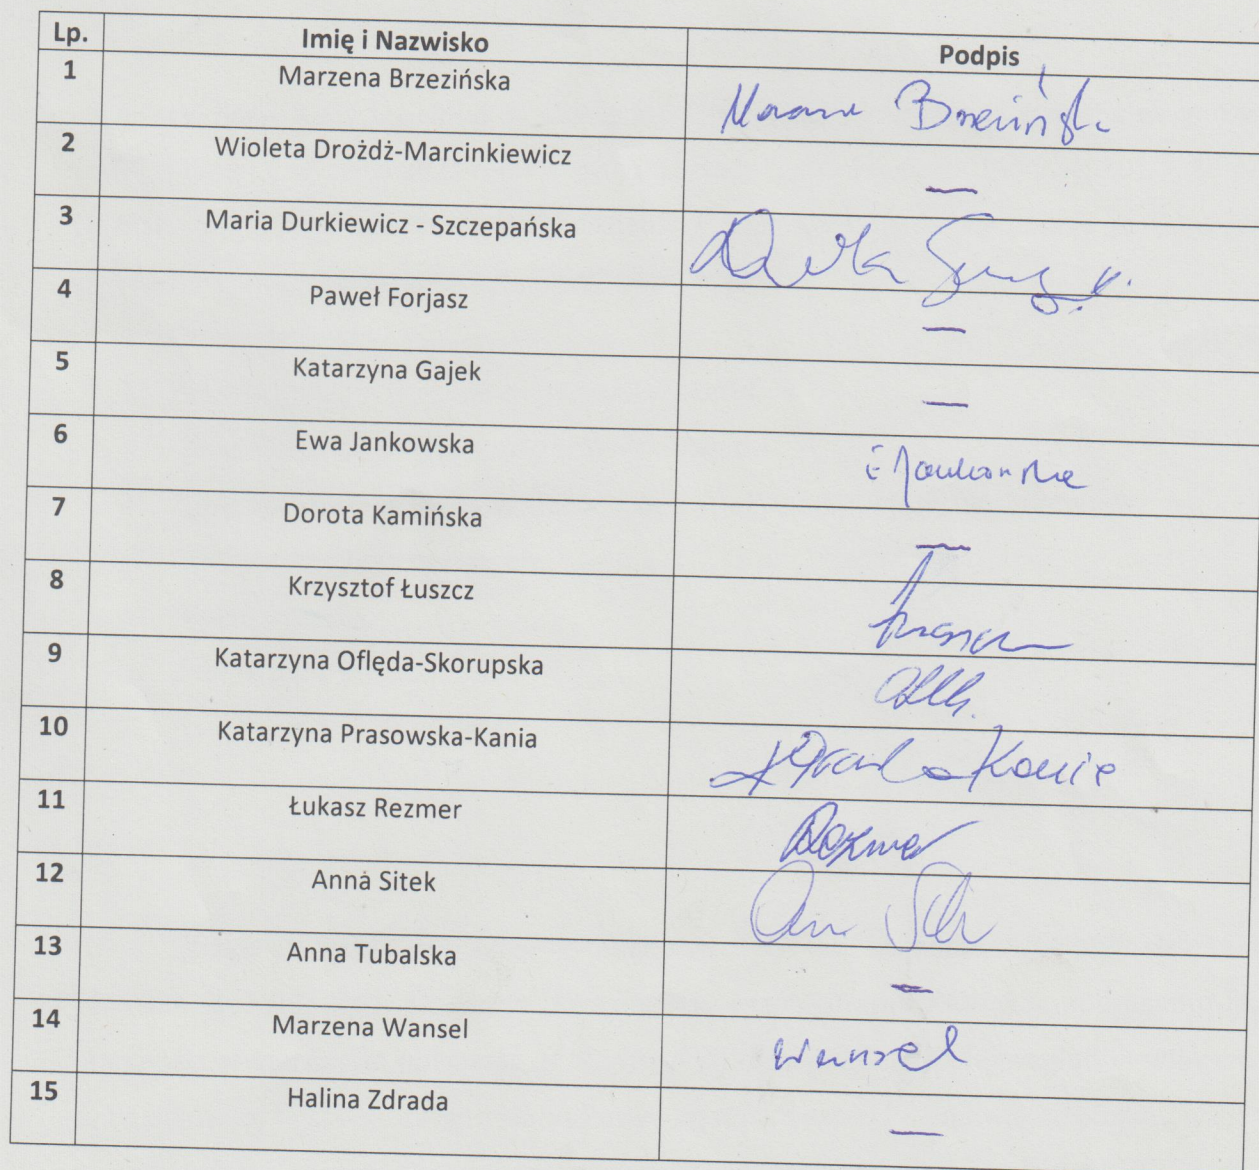 Lp. Imię i Nazwisko Podpis
1 Marzena Brzezińska Brzezińska
2 Wioleta Drożdż-Marcinkiewicz —
3 Maria Durkiewicz - Szczepańska
4 Paweł Forjasz —
5 Katarzyna Gajek —
6 Ewa Jankowska E Jankowska
7 Dorota Kamińska —
8 Krzysztof Łuszcz
9 Katarzyna Oflęda-Skorupska
10 Katarzyna Prasowska-Kania Kania
11 Łukasz Rezmer Rezmer
12 Anna Sitek
13 Anna Tubalska —
14 Marzena Wansel Wansel
15 Halina Zdrada —